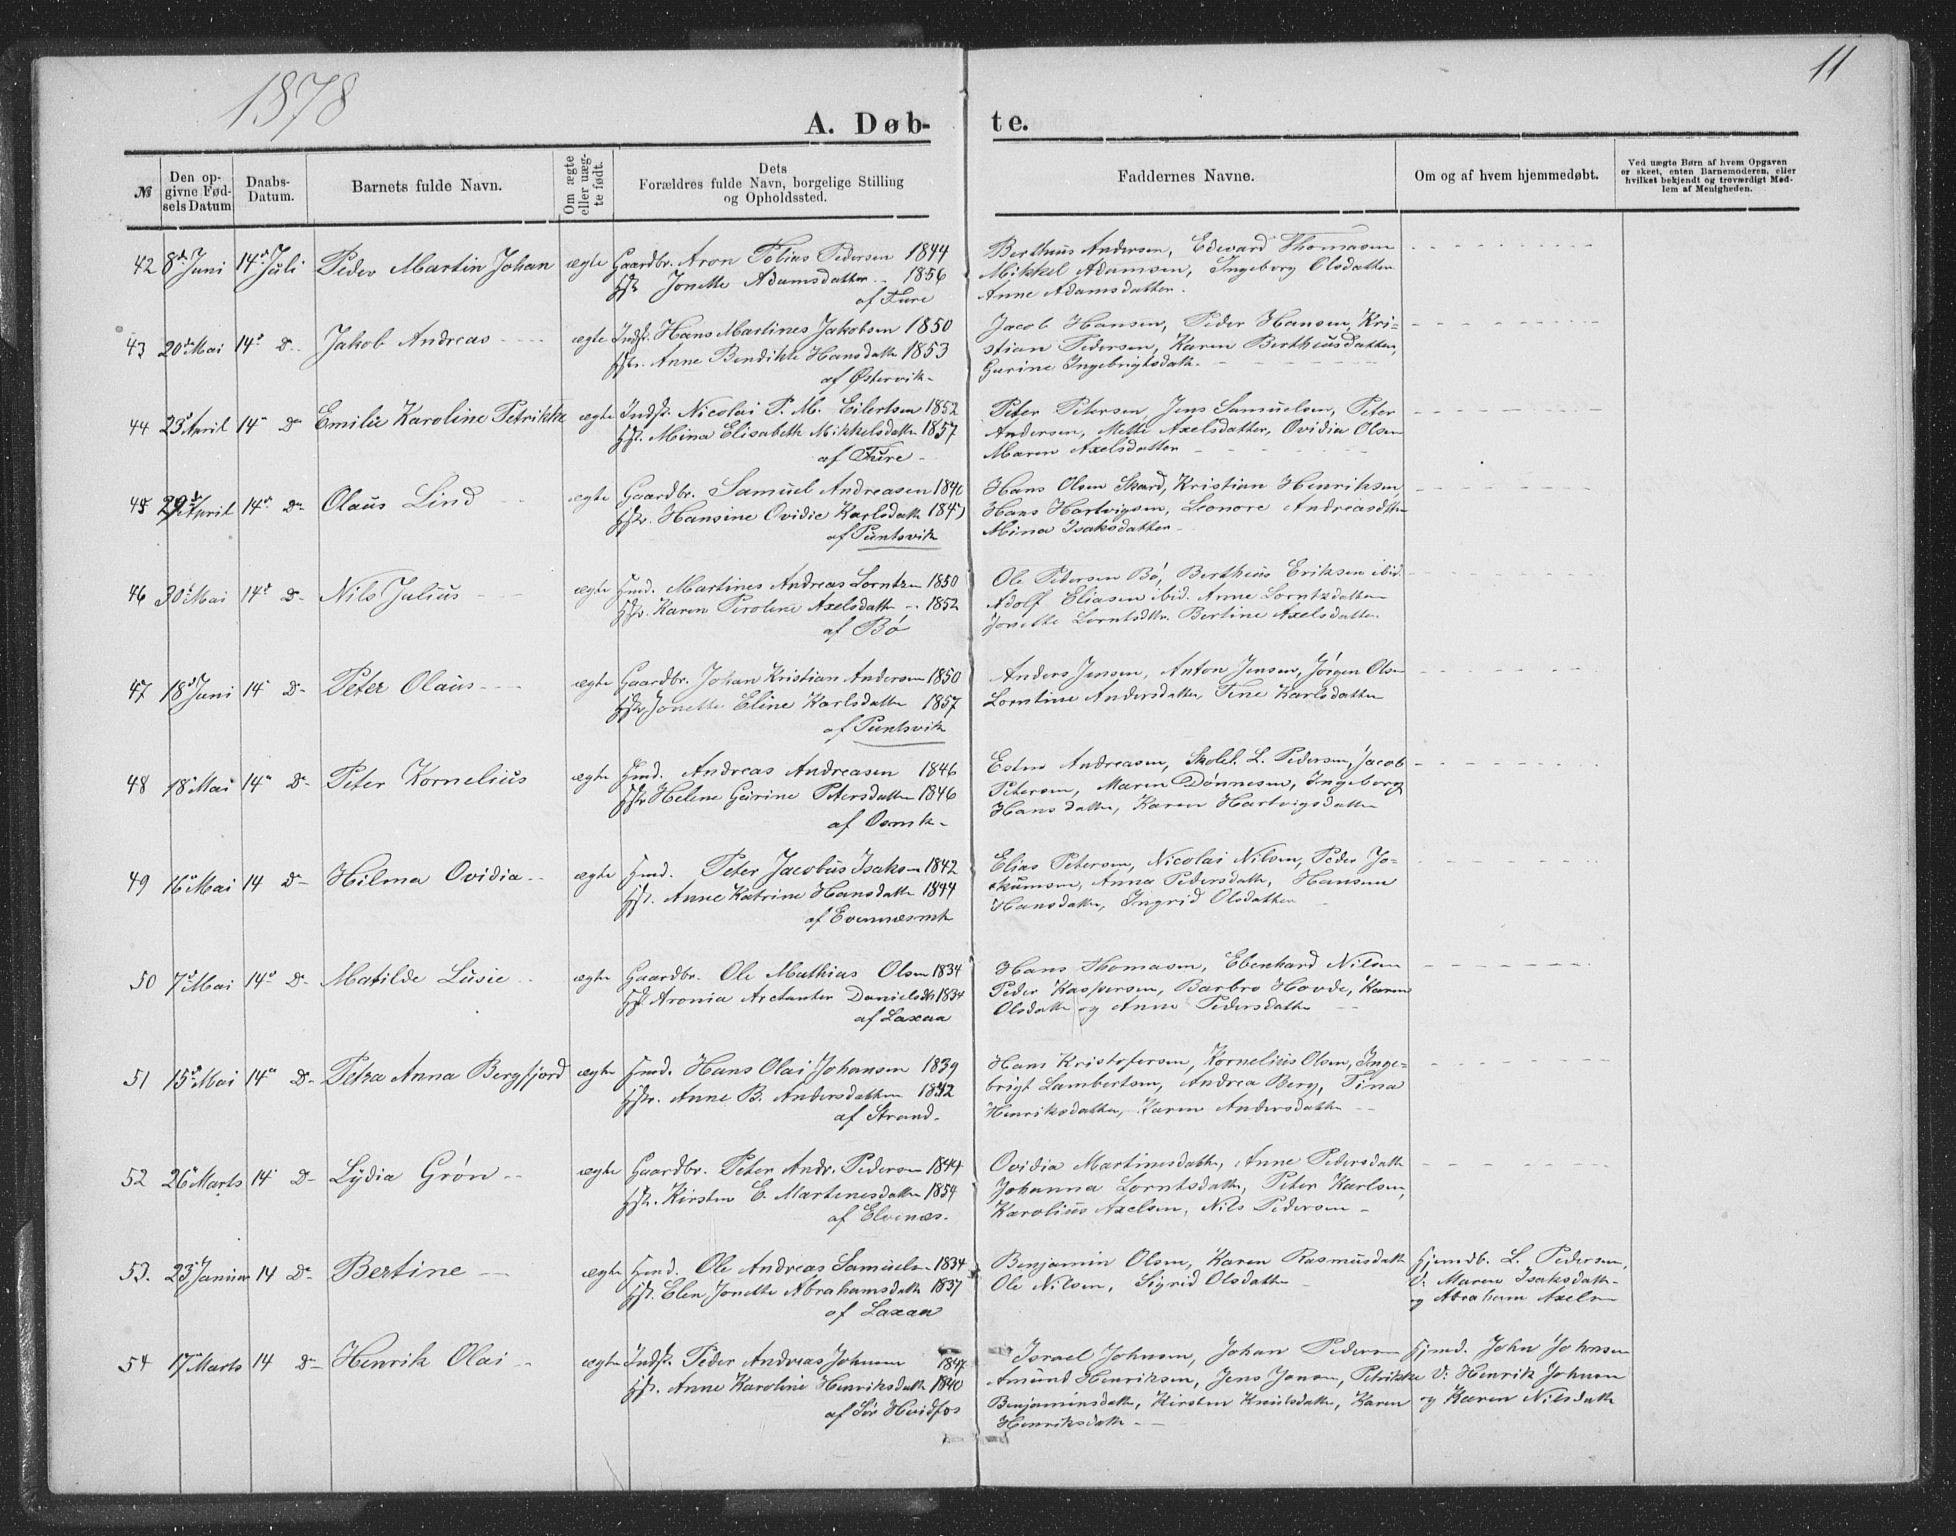 1878
11
A. Døb-
te.
№
Den op-
givne Fød-
sels Datum
Daabs-
Datum.
Barnets fulde Navn.
Om ægte
eller uæg-
te født.
Dets
Forældres fulde Navn, borgelige Stilling
og Opholdssted.
Faddernes Navne.
Om og af hvem hjemmedøbt.
Ved uægte Børn af hvem Opgaven
er skeet, enten Barnemoderen, eller
hvilket bekjendt og troværdigt Med-
lem af Menigheden.
42 8de Juni 14de Juli Peder Martin Johan ægte Gaardbr. Aron Tobias Pedersen 1844
Jonette Adamsdatter 1856
af Fure
Berthius Andersen, Edevard Thomasen
Mikkel Adamsen, Ingeborg Olsdatter
Anne Adamsdatter.
43 20de Mai 14de Do Jakob Andreas ægte Indst. Hans Martines Jakobsen 1850
Hstr. Anne Bendikte Hansdattr 1853
af Østervik
Jacob Hansen, Peder Hansen, Kri-
stian Pedersen, Karen Bertheusdatter,
Gurine Ingebrigtsdattr
44 23de April 14de Do Emilie Karoline Petrikke ægte Indst. Nicolai P. M. Eilertsen 1852
Hst. Mina Elisabeth Mikkelsdattr 1857
af Fure
Peter Petersen, Jens Samuelsen, Peter
Andersen, Mette Axelsdatter, Ovidia Olsen
Maren Axelsdatter
45 29de April 14de Do Olaus Lind ægte Gaardbr. Samuel Andreasen
Hstr. Hansine Ovidie Karlsdattr
af Puntsvik
Hans Olsen Skard, Kristian Henriksen
Hans Hartvigsen, Leonore Andreasdttr
Mina Isaksdatter
46 30de Mai 14de Do Nils Julius ægte Hmd. Martines Andreas Lorntzen 1850
Hstr. Karen Peroline Axelsdattr 1852
af Bø
Ole Pedersen Bø, Bertheus Eriksen ibid.
Adolf Eliasen ibid. Anne Lorntzdatter
Jonette Lorntsdttr. Bertine Axelsdatter.
47 18de Juni 14 Do Peter Olaus ægte Gaardbr. Johan Kristian Andersen 1850
Hstr. Jonette Eline Karlsdattr 1857
af Puntsvik
Anders Jensen, Anton Jensen, Jørgen Olsen
Lorntine Andersdattr, Tine Karlsdatter
48 18de Mai 14de Do Peter Kornelius ægte Hmd. Andreas Andreasen 1846
Hstr Helene Gurine Petersdatter 1846
af
Andreasen, Skolel. L. Pedersen, Jacob
Petersen, Maren Dønnesen, Ingeborg
Hansdatter, Karen Hartvigsdatter
49 16de Mai 14 Do Hilma Ovidia ægte Hmd. Peter Jacobus Isaksen 1842
Hst. Anne Katrine Hansdattr 1844
af Evennæsmk
Elias Petersen, Nicolai Nilsen, Peder Jo-
akumsen, Anna Pedersdattr, Hansen
Hansdattr, Ingrid Olsdatter
50 7de Mai 14de Do Matilde Lusie ægte Gaardbr. Ole Mathias Olsen 1834
Hst. Aronia Danielsdtr 1834
af Laxaa
Hans Thomasen, Ebenhard Nilsen
Peder Kaspersen, Barbro Hovde, Karen
Olsdattr og Anne Pedersdattr
51 15de Mai 14de Do Petra Anna Bergfjord ægte Hmd. Hans Olai Johansen 1839
Hstr. Anne B. Andersdatter 1842
af Strand.
Hans Kristofersen, Kornelius Olsen, Inge-
brigt Lambertsen, Andrea Berg, Tina
Henriksdatter, Karen Andersdattr
52 26de Marts 14 Do Lydia Grøn ægte Gaardbr. Peter Andr. Pedersen 1844
Hst. Kirsten E. Martinesdatter 1854
af Elvenæs.
Ovidia Martinesdattr, Anne Pedersdattr
Johanna Lorntsdattr, Peter Karlsen,
Karolius Axelsen, Nils Pedersen
53. 23de Januar 14 Do Bertine ægte Hmd. Ole Andreas Samuelsen 1834
Hst. Elen Jonette Abrahamsdattr 1837
af Laxaa
Benjamin Olsen, Karen Rasmusdattr
Ole Nilsen, Sigrid Olsdatter
Hjemdb. L. Pedersen,
V: Maren Isaksdattr
og Abraham Axelsen
54 17de Marts 14 Do Henrik Olai ægte Indst. Peder Andreas Johnsen 1847
Hst. Anne Karoline Henriksdattr 1840
af Sør Hvidfos
Israel Johnsen, Johan Pedersen
Amund Henriksen, Jens Jonsen, Petrikke
Benjaminsdattr, Kirsten Knutsdattr, Karen
Henriksdattr
Hjmd. John Johnsen
V: Henrik Johnsen
og Karen Nilsdattr